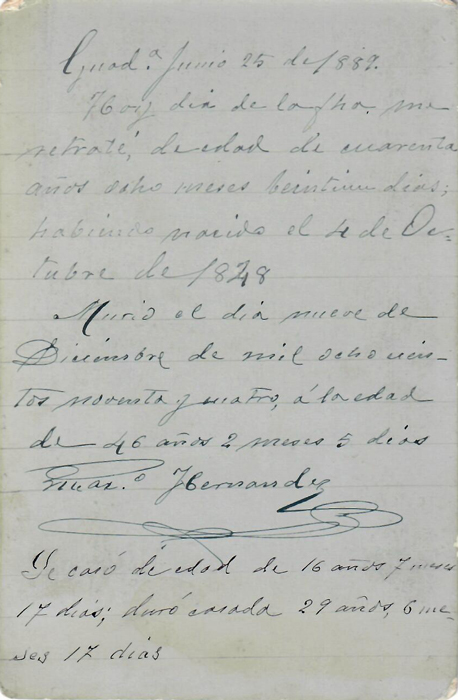 Guad.ª Junio 25 de 1889.
Hoy dia de la fha. me
retraté, de edad de cuarenta
años ocho meses beintiun dias;
habiendo nacido el 4 de Oc=
tubre de 1848
Murio el dia nueve de
Diciembre de mil ochocien-
tos noventa y cuatro, á la edad
de 46 años 2 meses 5 dias
Hernandez
Se casó de edad de 16 años 7 meses
17 dias; duró casada 29 años, 6 me-
ses 17 dias